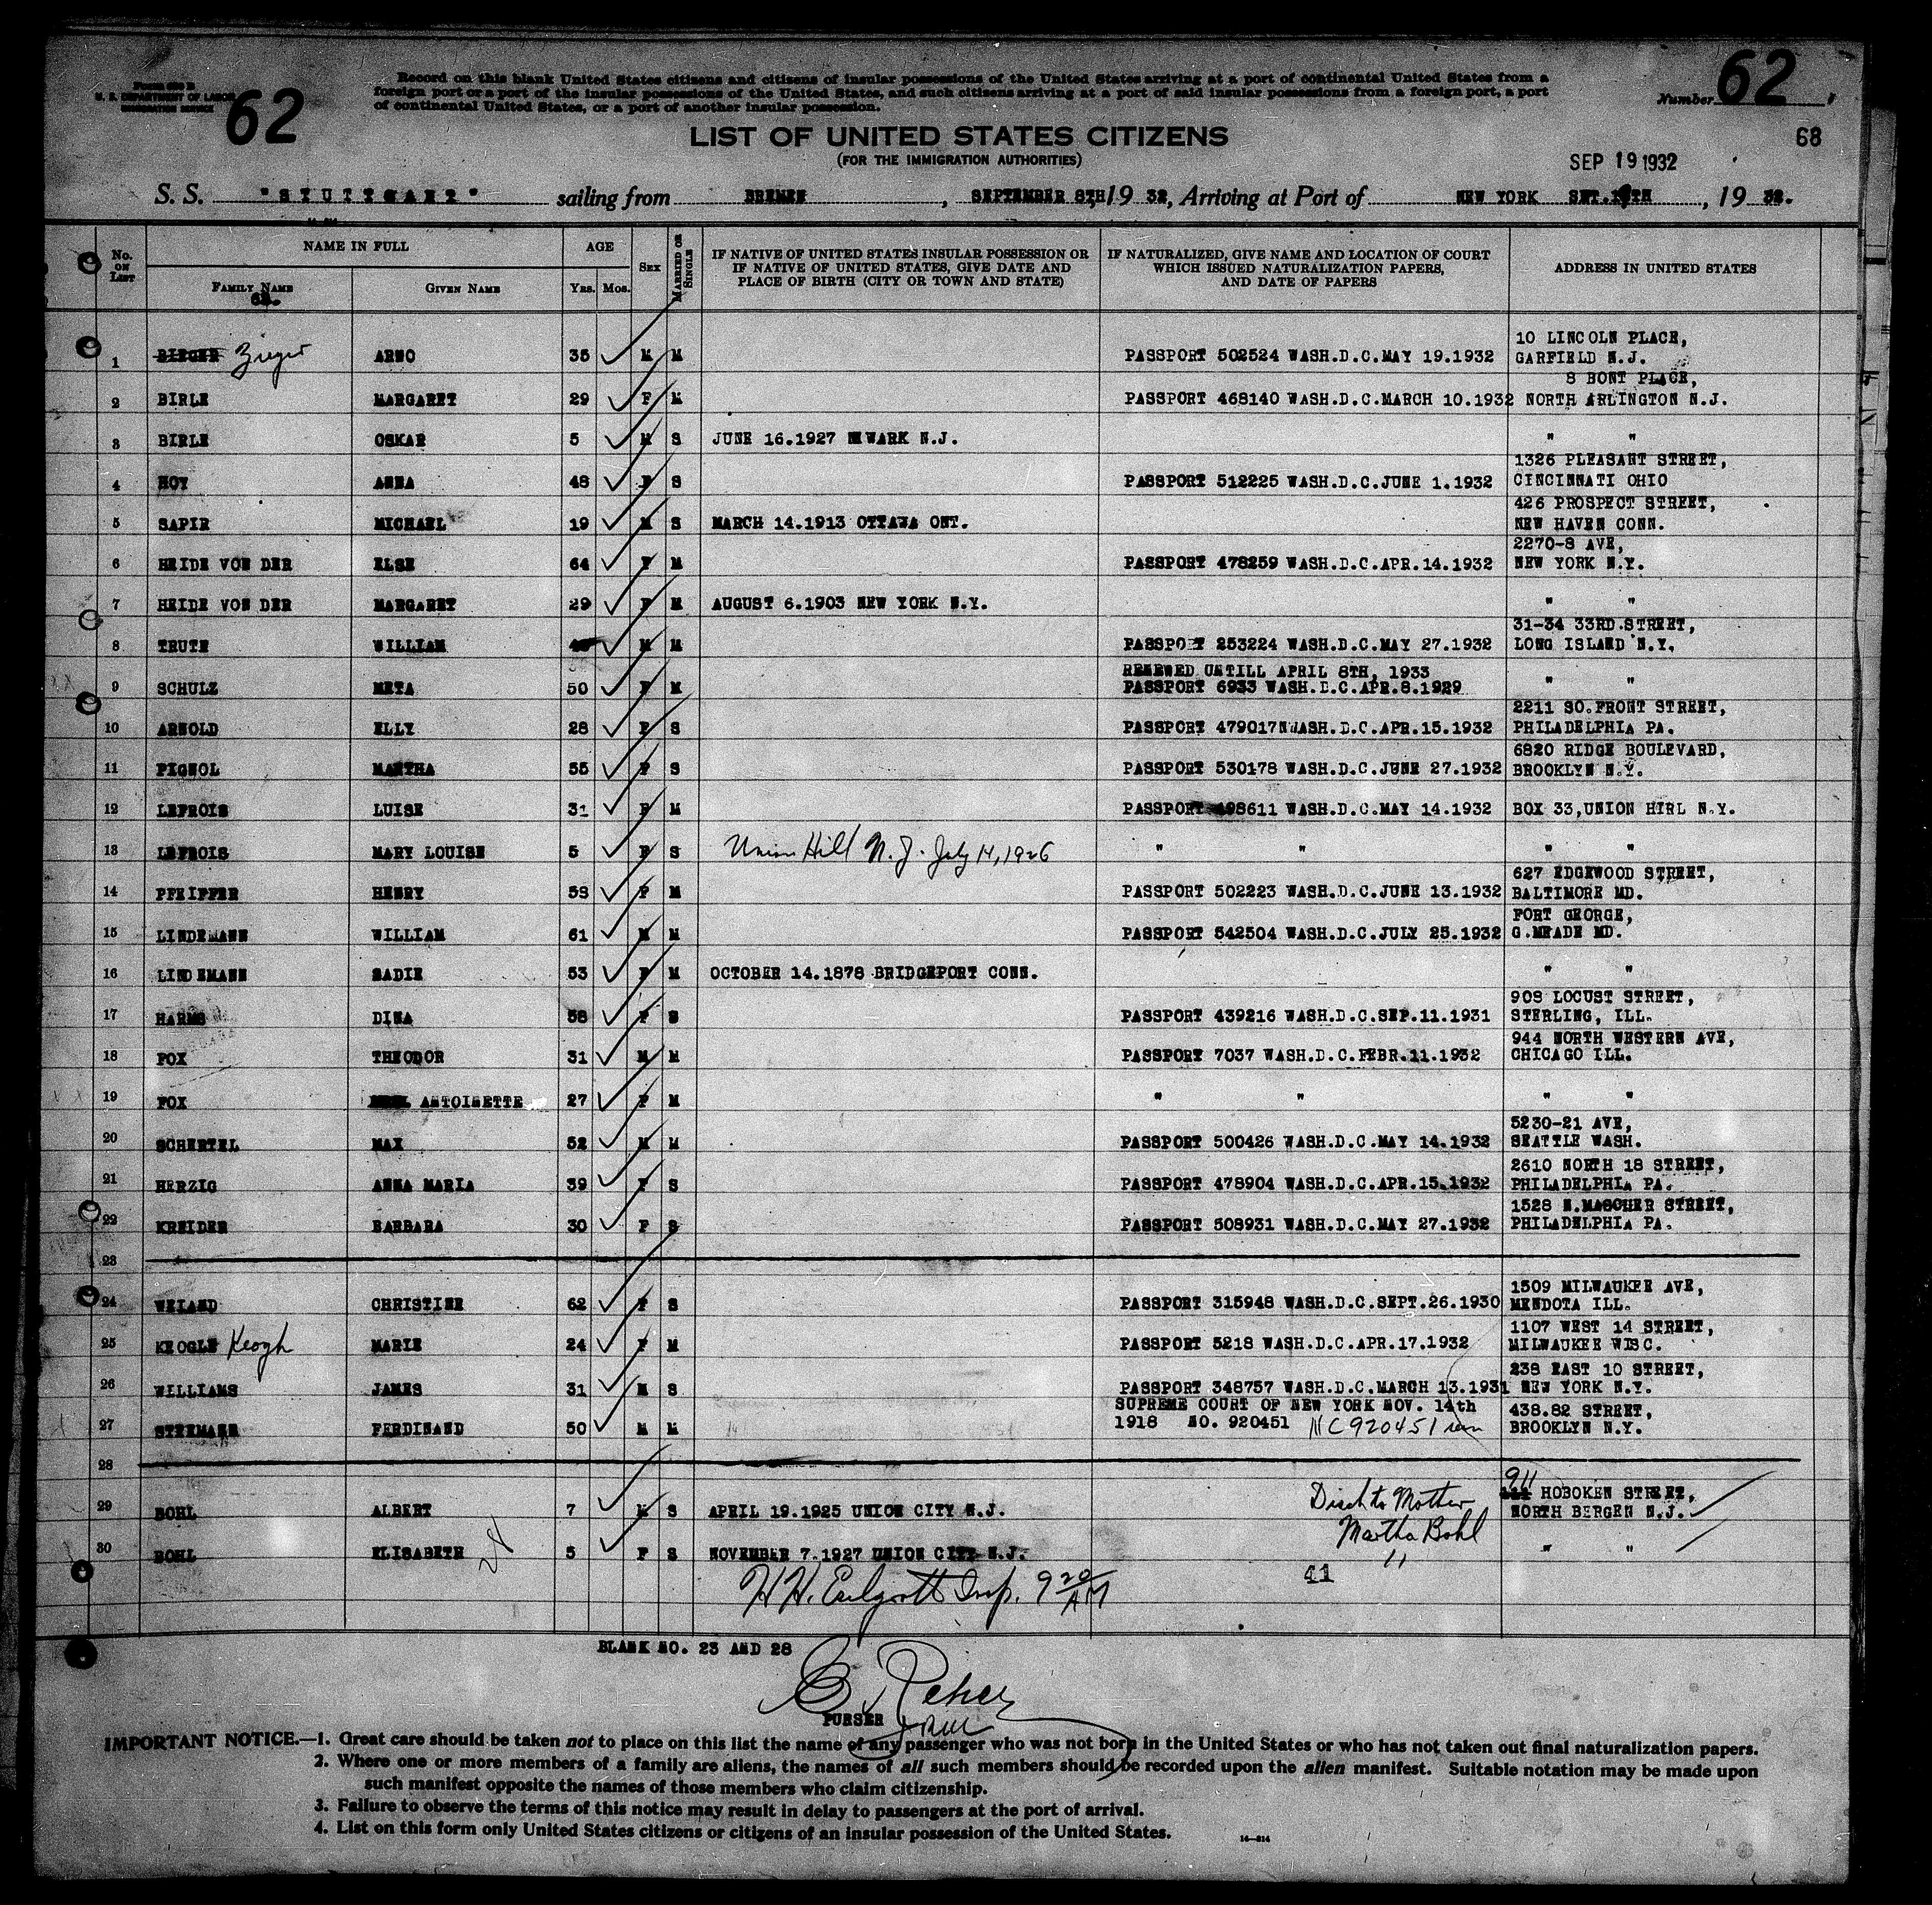 Form 630 B
U. S. DEPARTMENT OF LABOR
IMMIGRATION SERVICE
62
Record on this blank United States citizens and citizens of insular possessions of the United States arriving at a port of continental United States from a
foreign port or a port of the insular possessions of the United States, and such citizens arriving at a port of said insular possessions from a foreign port, a port
of continental United States, or a port of another insular possession.
Number 62
LIST OF UNITED STATES CITIZENS
(FOR THE IMMIGRATION AUTHORITIES)
68
SEP 19 1932
S. S. "STUTTGART" sailing from BREMEN, SEPTEMBER 8TH, 19 32, Arriving at Port of NEW YORK SET. TH, 19 32.
No. ON LIST NAME IN FULL AGE SEX MARRIED OR SINGLE IF NATIVE OF UNITED STATES INSULAR POSSESSION OR IF NATIVE OF UNITED STATES, GIVE DATE AND PLACE OF BIRTH (CITY OR TOWN AND STATE) IF NATURALIZED, GIVE NAME AND LOCATION OF COURT WHICH ISSUED NATURALIZATION PAPERS, AND DATE OF PAPERS ADDRESS IN UNITED STATES
FAMILY NAME GIVEN NAME YRS. MOS.
62.
1 BIEGER Zieger ARNO 35 M M PASSPORT 502524 WASH.D.C.MAY 19.1932 10 LINCOLN PLACE, GARFIELD N.J.
2 BIRLE MARGARET 29 F M PASSPORT 468140 WASH.D.C.MARCH 10.1932 8 BONT PLACE, NORTH ARLINGTON N.J.
3 BIRLE OSKAR 5 M S JUNE 16.1927 NEWARK N.J. " "
4 HOY ANNA 48 F S PASSPORT 512225 WASH.D.C.JUNE 1.1932 1326 PLEASANT STREET, CINCINNATI OHIO
5 SAPIR MICHAEL 19 M S MARCH 14.1913 OTTAWA ONT. 426 PROSPECT STREET, NEW HAVEN CONN.
6 HEIDE VON DER ELSE 64 F M PASSPORT 478259 WASH.D.C.APR.14.1932 2270-8 AVE, NEW YORK N.Y.
7 HEIDE VON DER MARGARET 29 F M AUGUST 6.1903 NEW YORK N.Y. " "
8 TRUTE WILLIAM M M PASSPORT 253224 WASH.D.C.MAY 27.1932 31-34 33RD.STREET, LONG ISLAND N.Y.
9 SCHULZ META 50 F M RENEWED UNTILL APRIL 8TH, 1933 PASSPORT 6933 WASH.D.C.APR.8.1929 " "
10 ARNOLD ELLY 28 F S PASSPORT 479017 WASH.D.C.APR.15.1932 2211 SO.FRONT STREET, PHILADELPHIA PA.
11 PIGNOL MARTHA 55 F S PASSPORT 530178 WASH.D.C.JUNE 27.1932 6820 RIDGE BOULEVARD, BROOKLYN N.Y.
12 LEFROIS LUISE 31 F M PASSPORT 498611 WASH.D.C.MAY 14.1932 BOX 33,UNION HIRL N.Y.
13 LEFROIS MARY LOUISE 5 F S Union Hill N.J. July 14, 1926 " " " "
14 PFEIFFER HENRY 53 F M PASSPORT 502223 WASH.D.C.JUNE 13.1932 627 EDGEWOOD STREET, BALTIMORE MD.
15 LINDEMANN WILLIAM 61 M M PASSPORT 542504 WASH.D.C.JULY 25.1932 FORT GEORGE, G.MEADE MD.
16 LINDEMANN SADIE 53 F M OCTOBER 14.1878 BRIDGEPORT CONN. " "
17 HARMS DINA 58 F S PASSPORT 439216 WASH.D.C.SEP.11.1931 909 LOCUST STREET, STERLING, ILL.
18 FOX THEODOR 31 M M PASSPORT 7037 WASH.D.C.FEBR.11.1932 944 NORTH WESTERN AVE, CHICAGO ILL.
19 FOX ANTOINETTE 27 F M " " " "
20 SCHERTEL MAX 52 M M PASSPORT 500426 WASH.D.C.MAY 14.1932 5230-21 AVE, SEATTLE WASH.
21 HERZIG ANNA MARIA 39 F S PASSPORT 478904 WASH.D.C.APR.15.1932 2610 NORTH 18 STREET, PHILADELPHIA PA.
22 KREIDER BARBARA 30 F S PASSPORT 508931 WASH.D.C.MAY 27.1932 1528 N.MASCHER STREET, PHILADELPHIA PA.
23
24 WEIAND CHRISTINE 62 F S PASSPORT 315948 WASH.D.C.SEPT.26.1930 1509 MILWAUKEE AVE, MENDOTA ILL.
25 KEOGLE Keogh MARIE 24 F M PASSPORT 5218 WASH.D.C.APR.17.1932 1107 WEST 14 STREET, MILWAUKEE WISC.
26 WILLIAMS JAMES 31 M S PASSPORT 348757 WASH.D.C.MARCH 13.1931 238 EAST 10 STREET, NEW YORK N.Y.
27 STEEMANN FERDINAND 50 M M SUPREME COURT OF NEW YORK NOV. 14th 1918 NO. 920451 NC920451 438.82 STREET, BROOKLYN N.Y.
28
29 BOHL ALBERT 7 M S APRIL 19.1925 UNION CITY N.J. Disch to Mother Martha Bohl 911 HOBOKEN STREET, NORTH BERGEN N.J.
30 BOHL ELISABETH 5 F S NOVEMBER 7.1927 UNION CITY N.J. " " "
41
H.H. Insp. 9 20 AM
BLANK NO. 23 AND 28
PURSER
IMPORTANT NOTICE.—1. Great care should be taken not to place on this list the name of any passenger who was not born in the United States or who has not taken out final naturalization papers.
2. Where one or more members of a family are aliens, the names of all such members should be recorded upon the alien manifest. Suitable notation may be made upon
such manifest opposite the names of those members who claim citizenship.
3. Failure to observe the terms of this notice may result in delay to passengers at the port of arrival.
4. List on this form only United States citizens or citizens of an insular possession of the United States.
14—814